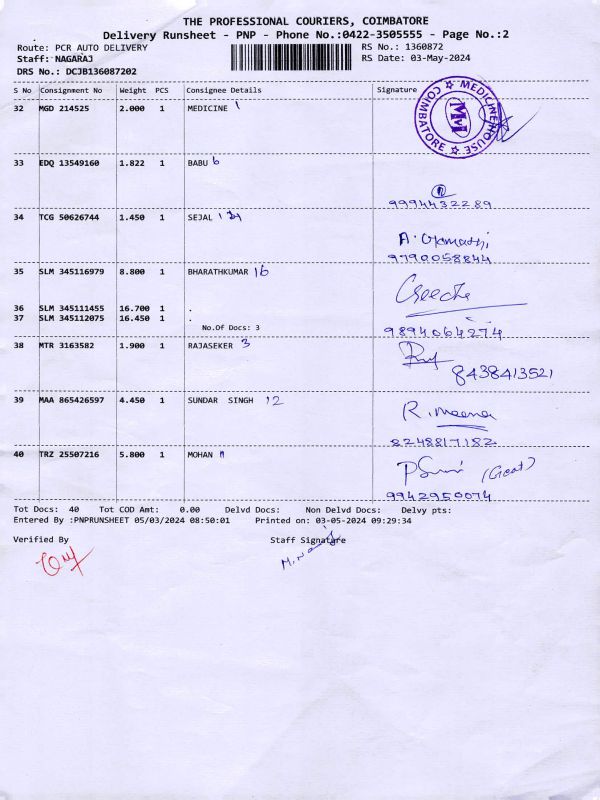 THE PROFESSIONAL COURIERS, COIMBATORE
Delivery Runsheet - PNP - Phone No.:0422-3505555 - Page No.:2
Route: PCR AUTO DELIVERY RS No.: 1360872
Staff: NAGARAJ RS Date: 03-May-2024
DRS No.: DCJB136087202
S No Consignment No Weight PCS Consignee Details Signature
32 MGD 214525 2.000 1 MEDICINE 1
MEDICINE HOUSE COIMBATORE
33 EDQ 13549160 1.822 1 BABU 6
9994432289
34 TCG 50626744 1.450 1 SEJAL
9790058844
35 SLM 345116979 8.800 1 BHARATHKUMAR 16
36 SLM 345111455 16.700 1 .
37 SLM 345112075 16.450 1 .
No.Of Docs: 3
9894064274
38 MTR 3163582 1.900 1 RAJASEKER 3
8438413521
39 MAA 865426597 4.450 1 SUNDAR SINGH 12
R. Meena
8248817182
40 TRZ 25507216 5.800 1 MOHAN
9942950074
Tot Docs: 40 Tot COD Amt: 0.00 Delvd Docs: Non Delvd Docs: Delvy pts:
Entered By :PNPRUNSHEET 05/03/2024 08:50:01 Printed on: 03-05-2024 09:29:34
Verified By Staff Signature